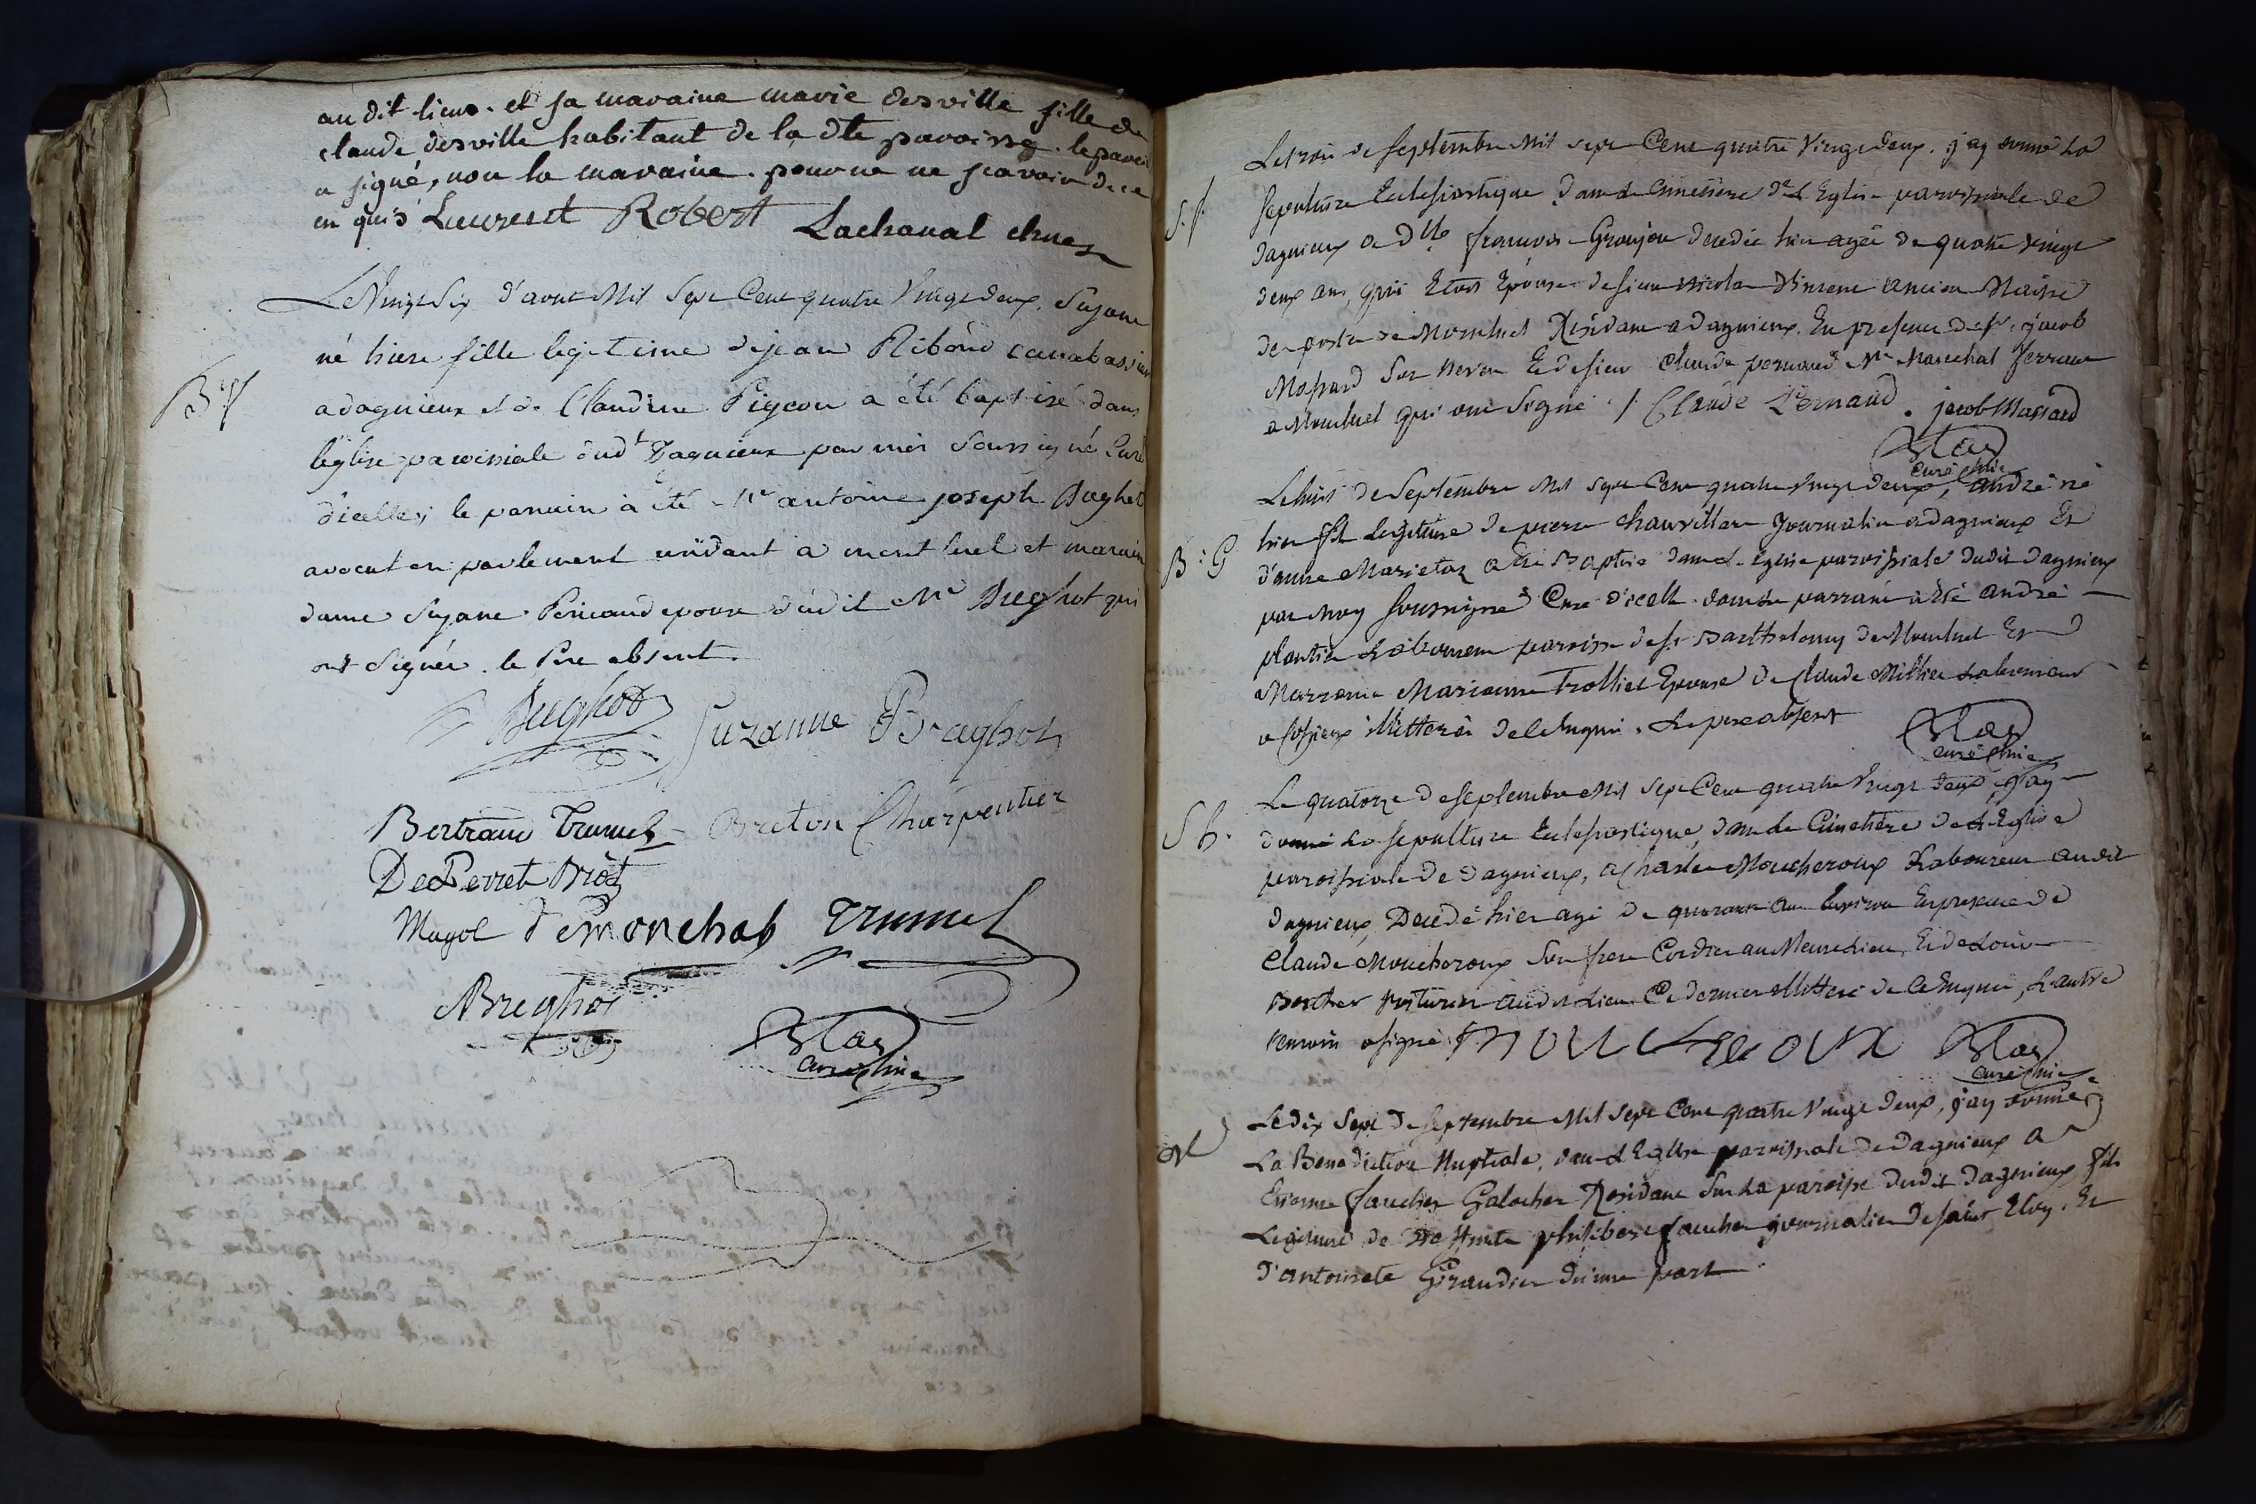 au dit lieux. et sa maraine marie desville fille de
claude desville habitant de la dte paroisse. le parein
a signé, non la maraine. pour ne ne scavoir de ce
en quis Laurent Robert Lachanal
Le Vingt Six d'aout Mil Sept Cent quatre Vingt deux, Suzane
né hiere fille legitime de jean Riboud canabassier
B f
a dagnieux et de Claudine Pigeon a été baptisé dans
l'eglise paroissiale dudt Dagnieux par moi soussigné Curé
d'icelle; le parrain à été Mr antoine joseph Bughot
avocat en parlement résidant à mont luel et maraine
dame Suzane Pericaud epouse dudit Mr Breghot qui
ont signés. le Pere absent.
Breghot Suzanne Braghot
Bertrand Trumel Breton Charpentier
De Perret
Mayol Demonchal Trumel
ABreghot
Blas
curé
Le trois de septembre Mil sept Cent quatre Vingt deux. j'ay donné La
S. f.
sepulture Eclesiastique dans le Cimetiere de L'Eglise paroissiale de
dagnieux a Dlle francoise Gronjon decedée hier agée de quatre vingt
deux ans, qui Etoit Epouse de sieur nicolas Vincent ancien Maitre
des postes de Montluel Residant a dagnieux. En presence de sr. jacob
Massard Son neveu Et de sieur Claude pernaud Me Marechal ferrant
a Montluel qui ont signé / Claude Pernaud. jacob Massard
Blas
curé
Le huit de Septembre Mil sept Cent quatre Vingt deux, andré né
hier fils Legitime de pierre chanvillare journalier a dagnieux Et
B: G
d'anne Marietoz a été Baptisé dans L'Eglise paroissiale dudit dagnieux
par Moy soussigné Curé d'icelle dont le parrain à été andré
plantier Laboureur paroisse de st Barthelemy de Montluel Et
Marraine Marianne Trolliet Epouse de Claude Millier Laboureur
a illitteré de le Enquis. Le pere absent
Blas
curé
Le quatorze de septembre Mil sept Cent quatre Vingt deux, j'ay
S h.
donné La sepulture Eclesiastique, dans le Cimetière de L'Eglise
paroissiale de dagnieux, a Charles Moucheroux Laboureur audit
dagnieux, Decédé hier agé de quarante ans Environ En presence de
Claude Moucheroux Son frere Cordier au Meme Lieu, Et de Louis
Berther Voiturier audit Lieu Ce dernier illitteré de Ce Enquis, L'autre
temoin a signé Moucheroux Blas
curé
Le dix Sept De septembre Mil sept Cent quatre Vingt deux, j'ay donné
M
La Benediction Nuptiale, dans L'Eglise paroissiale de Dagnieux a
Etienne faucher Galocher Residant Sur La paroisse dudit Dagnieux, fils
Legitime de philibert faucher journalier de saint Eloy, Et
d'antoinete Giraudier d'une part